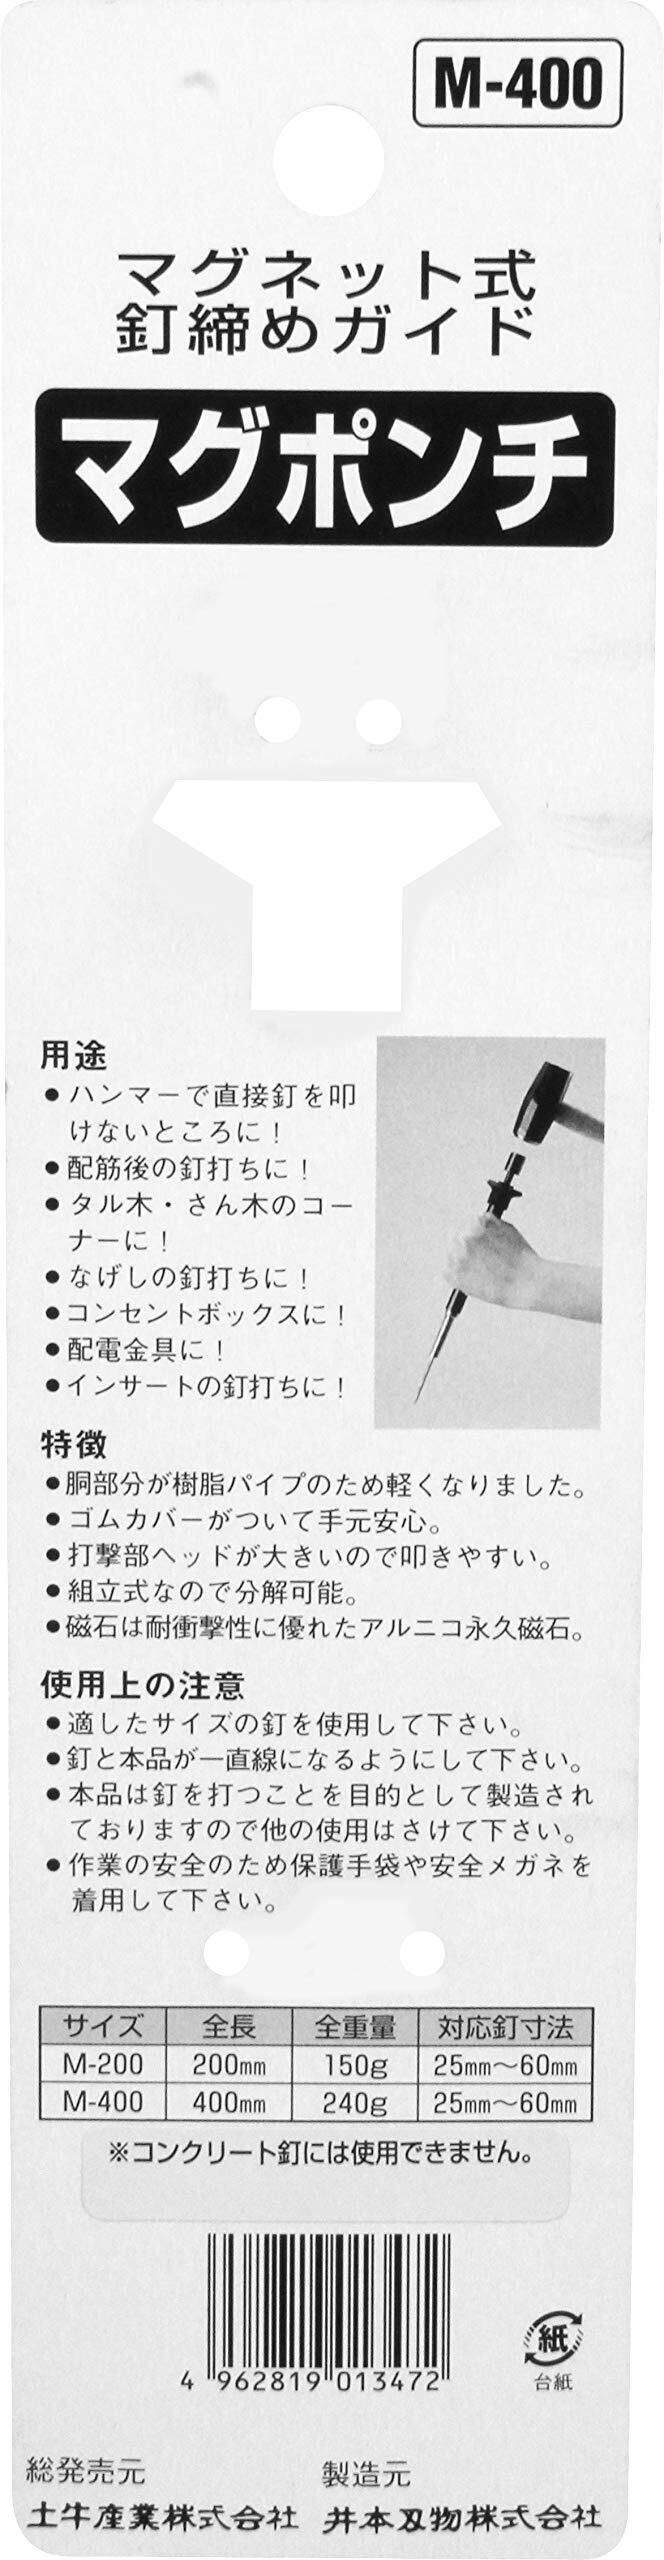 M-400
マグネット式
釘締めガイド
マグポンチ
用途
●ハンマーで直接釘を叩
けないところに！
●配筋後の釘打ちに！
●タル木・さん木のコー
ナーに！
●なげしの釘打ちに！
●コンセントボックスに！
●配電金具に！
●インサートの釘打ちに！
特徴
●胴部分が樹脂パイプのため軽くなりました。
●ゴムカバーがついて手元安心。
●打撃部ヘッドが大きいので叩きやすい。
●組立式なので分解可能。
●磁石は耐衝撃性に優れたアルニコ永久磁石。
使用上の注意
●適したサイズの釘を使用して下さい。
●釘と本品が一直線になるようにして下さい。
●本品は釘を打つことを目的として製造され
ておりますので他の使用はさけて下さい。
●作業の安全のため保護手袋や安全メガネを
着用して下さい。
サイズ 全長 全重量 対応釘寸法
M-200 200mm 150g 25mm～60mm
M-400 400mm 240g 25mm～60mm
※コンクリート釘には使用できません。
4 962819 013472
紙
台紙
総発売元 製造元
土牛産業株式会社 井本刃物株式会社